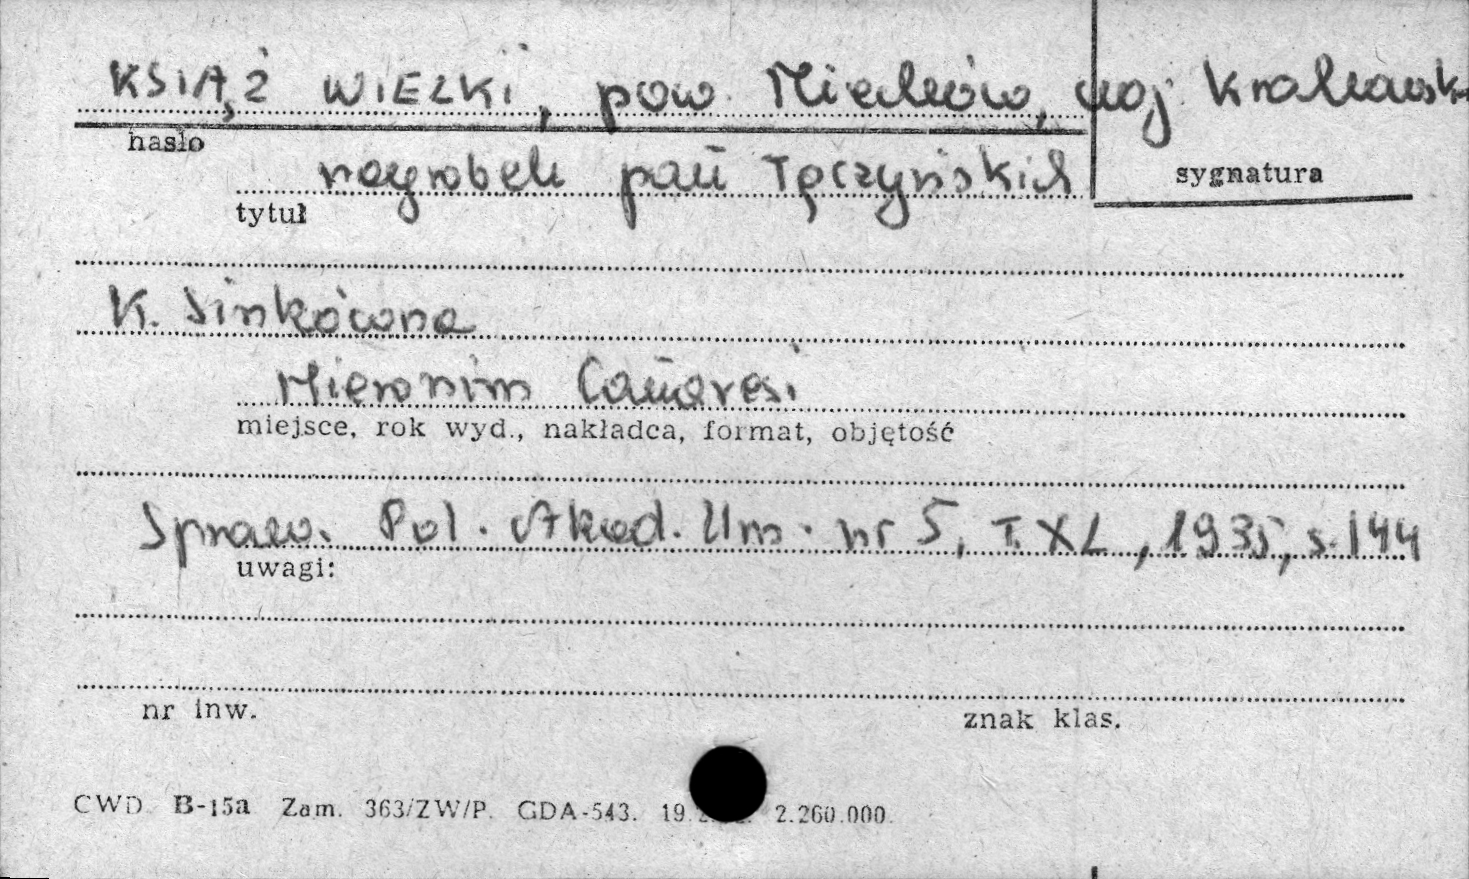 KSIĄŻ WIELKI, pow. Miechów, woj. Krakowsk.
hasło
nagrobek pań Tęczyńskich
sygnatura
tytuł
K. Sinkówna
Hieronim Canavesi
miejsce, rok wyd., nakładca, format, objętość
Spraw. Pol. Akad. Um. nr 5, T. XL, 1935, s. 144
uwagi:
nr inw.
znak klas.
CWD B-15a Zam. 363/ZW/P. GDA-543. 19. 2.260.000